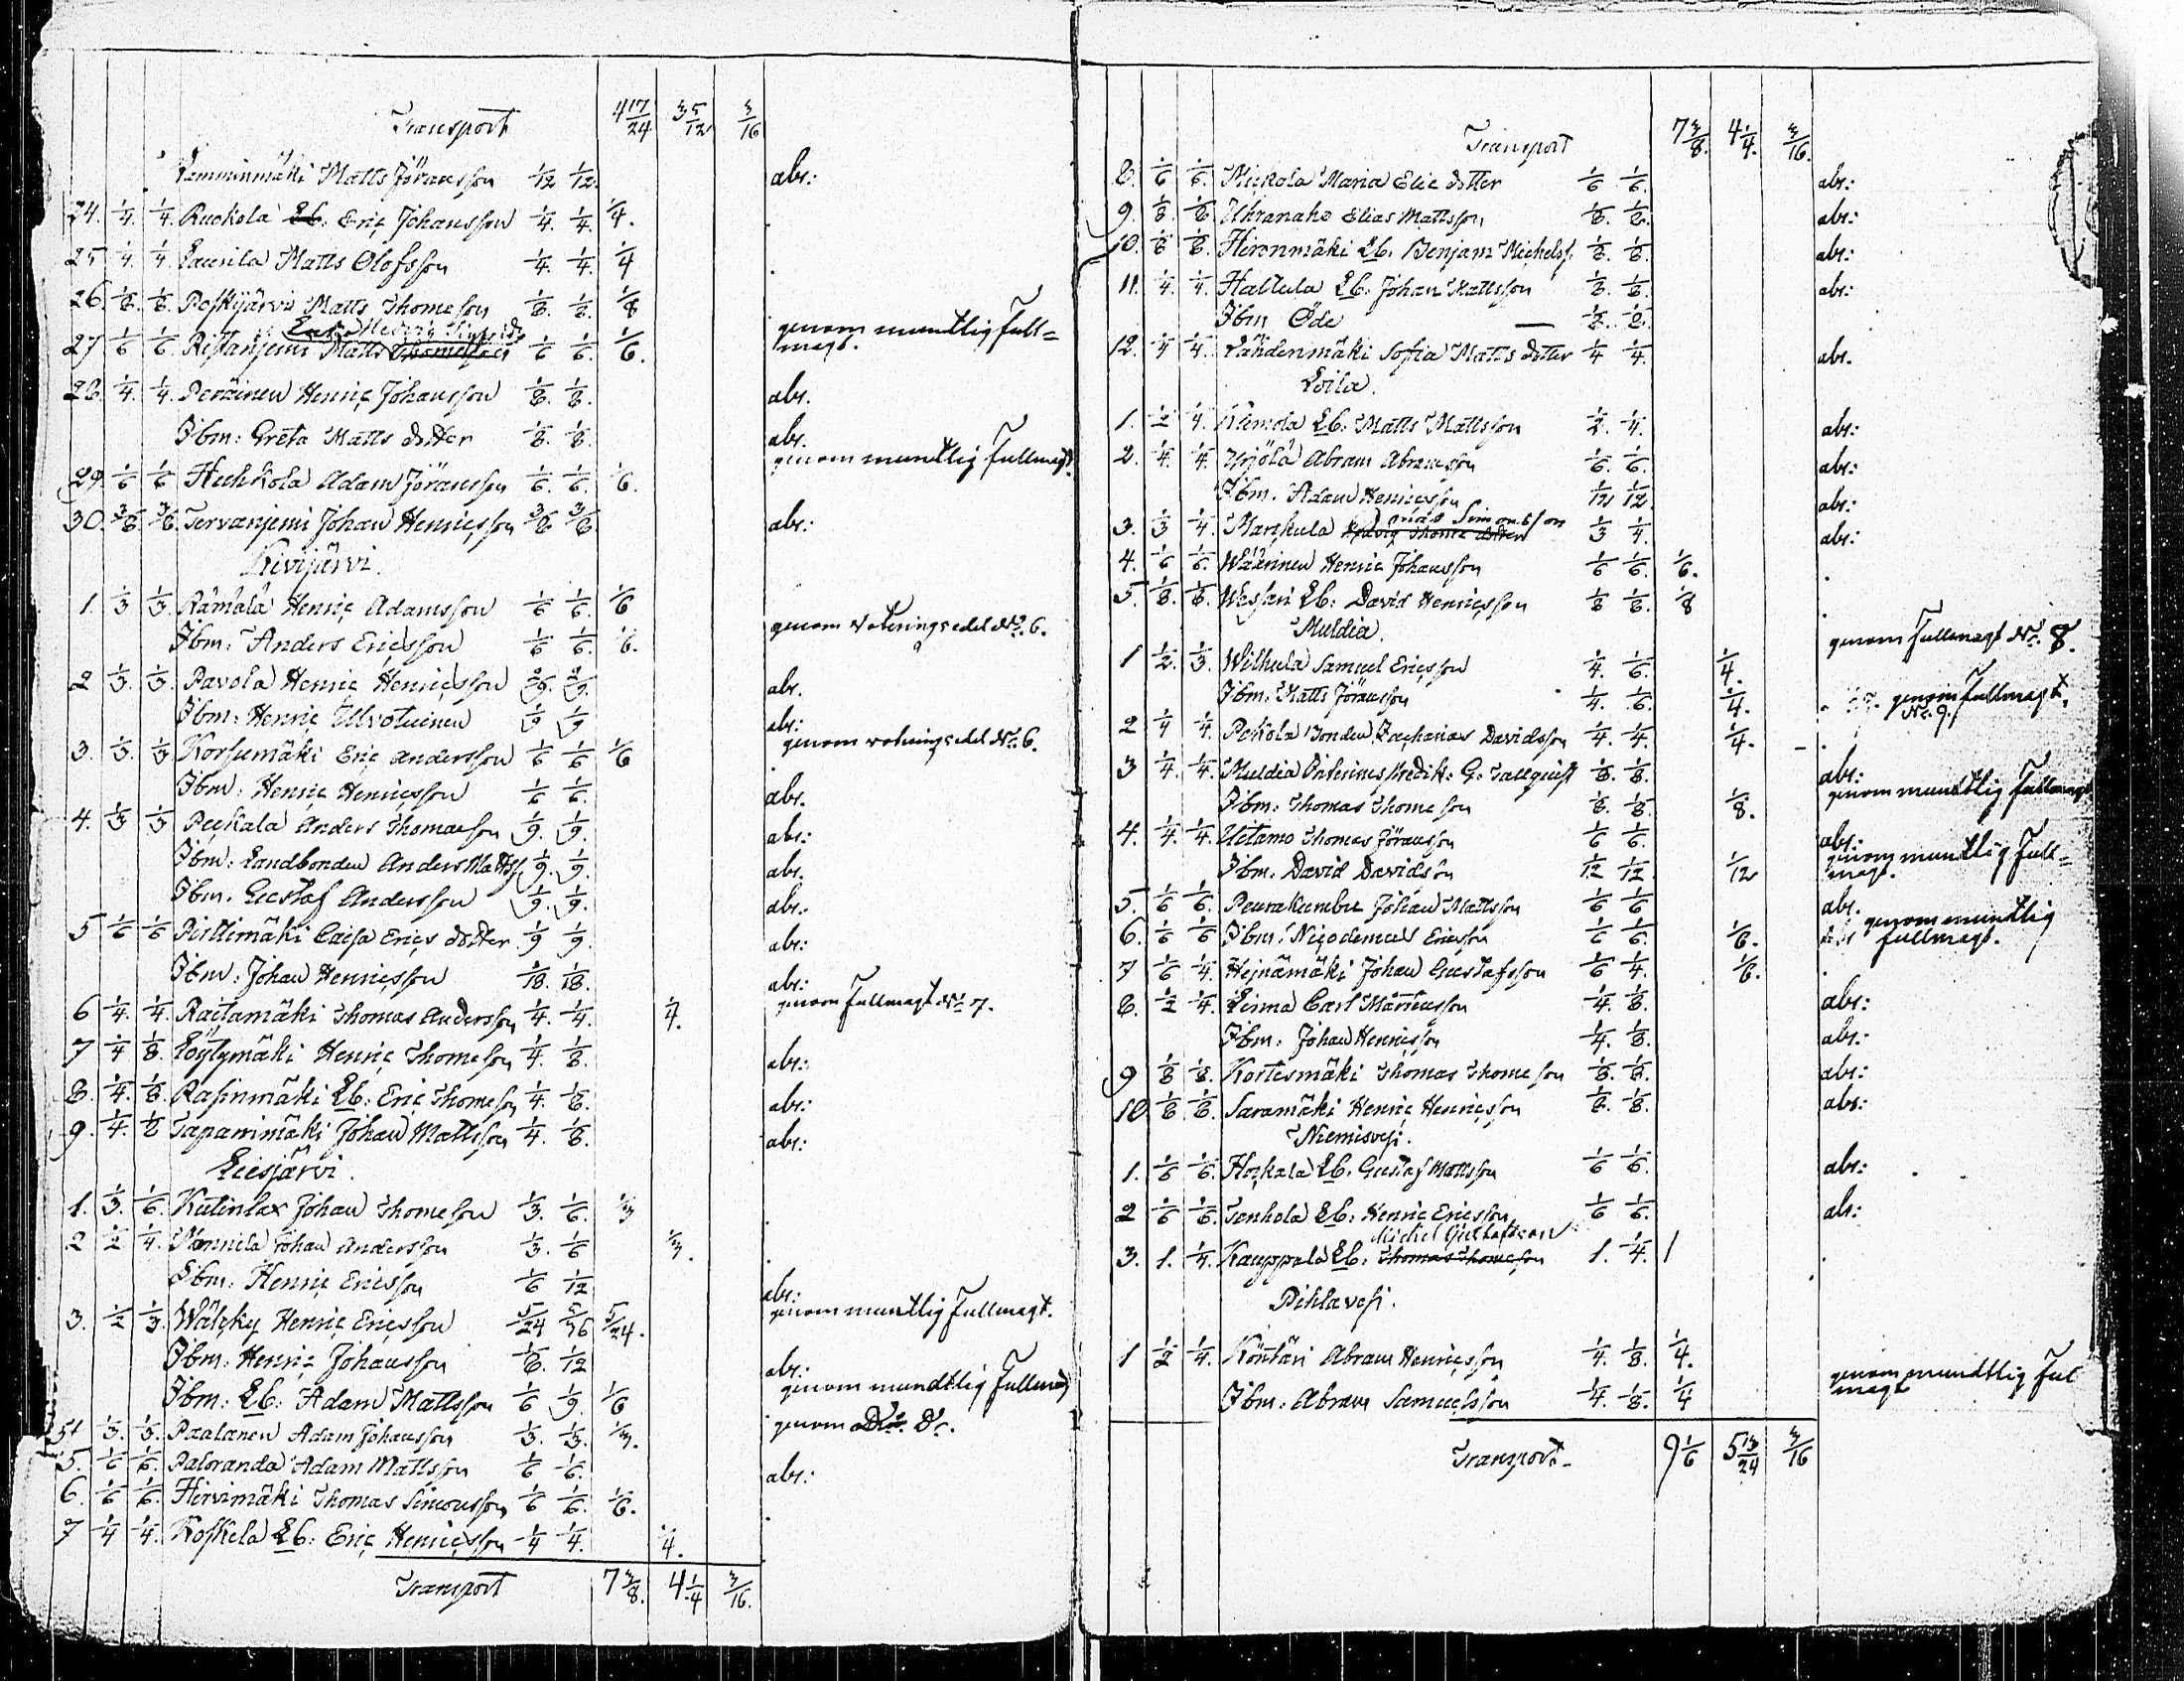 Transport 4 17/24 3 5/12 3/16
Lemminmäki Matts Jöransson 1/12 1/12. abs:
24. 1/4. 1/4. Ruokola Lb. Eric Johansson 1/4. 1/4. 1/4.
25 1/4. 1/4. Laurila Matts Olofsson 1/4. 1/4. 1/4
26. 1/8. 1/8. Poskijärvi Matts Thomesson 1/8. 1/8. 1/8
27 1/6 1/6. Ristaniemi Matts Thomesson 1/6 1/6. 1/6. genom muntlig full=
magt.
28. 1/4. 1/4. Peräinen Henric Johansson 1/8. 1/8. abs.
Ibm: Greta Matts dotter 1/8. 1/8. abs.
29. 1/6 1/6 Huhkola Adam Jöransson 1/6. 1/6. 1/6. genom muntlig fullmagt.
30. 3/8 3/8. Tervaniemi Johan Henricsson 3/8 3/8. abs:
Kivijärvi.
1. 1/3 1/3. Rämälä Henric Adamsson 1/6 1/6. 1/6
Ibm: Anders Ericsson 1/6 1/6. 1/6. genom voteringssedel No. 6.
2 1/3. 1/3. Pavola Henric Henricsson 2/9. 2/9. abs.
Ibm: Henric Ulvotuinen 1/9 1/9 abs:
3. 1/3. 1/3 Korsumäki Eric Andersson 1/6 1/6 1/6 genom voteringssedel No. 6.
Ibm: Henric Henricsson 1/6 1/6. abs.
4. 1/3 1/3 Peckala Anders Thomasson 1/9. 1/9. abs:
Ibm: Landbonden Anders Mattss 1/9. 1/9. abs.
Ibm. Gustaf Andersson 1/9. 1/9. abs:
5 1/6 1/6 Pisttimäki Caisa Erics dotter 1/9 1/9. abs:
Ibm: Johan Henricsson 1/18. 1/18. abs:
6 1/4. 1/4. Raitamäki Thomas Andersson 1/4. 1/4. 1/4. genom Fullmagt No 7.
7 1/4 1/8. Löytymäki Henric Thomesson 1/4. 1/8. abs:
8. 1/4. 1/8. Rasinmäki Lb: Eric Thomesson 1/4. 1/8. abs:
9. 1/4. 1/8 Tapanimäki Johan Mattsson 1/4. 1/8. abs:
Liesjärvi.
1. 1/3. 1/6. Kutinlax Johan Thomesson 1/3. 1/6. 1/3
2 1/2 1/4. Nonnila Johan Andersson 1/3. 1/6 1/3.
Ibm: Henric Ericsson 1/6 1/12 abs:
3. 1/2 1/3. Wälcky Henric Ericsson 5/24 5/36 5/24. genom muntlig Fullmagt.
Ibm: Henric Johansson 1/8. 1/12 abs:
Ibm: Lb: Adam Mattsson 1/6 1/9. 1/6 genom mundtlig Fullmagt
4 1/3. 1/3. Paalanen Adam Johansson 1/3. 1/3. 1/3. genom Do. Do.
5. 1/6 1/6. Paloranda Adam Mattsson 1/6 1/6. abs:
6. 1/6 1/6. Hirvimäki Thomas Simonsson 1/6 1/6. 1/6.
7 1/4 1/4. Koskela Lb: Eric Henricsson 1/4 1/4. 1/4.
Transport 7 3/8. 4 1/4 3/16.
Transport 7 3/8. 4 1/4. 3/16.
8. 1/6 1/6. Mickola Maria Elie dotter 1/6 1/6. abs:
9. 1/8. 1/8 Uhranaho Elias Mattsson 1/8. 1/8. abs:
10. 1/8 1/8. Hironmäki Lb. Benjam Michelss. 1/8. 1/8. abs:
11. 1/4. 1/4. Hallula Lb: Johan Mattsson 1/8. 1/8. abs:
Ibm Öde — 1/8. 1/8.
12. 1/4 1/4. Lähdenmäki Sofia Matts dotter 1/4 1/4. abs.
Loila.
1. 1/2 1/4. Klemola Lb: Matts Mattsson 1/2. 1/4. abs:
2. 1/4. 1/4. Yrjölä Abram Abramsson 1/6. 1/6. abs:
Ibm. Adam Henricsson 1/12 1/12. abs:
3. 1/3 1/4. Marckula Hedvig Thomæ dotter Simonsson 1/3 1/4. abs:
4. 1/6 1/6. Wäärinen Henric Johansson 1/6 1/6. 1/6.
5. 1/8. 1/8. Wessari Lb: David Henricsson 1/8 1/8. 1/8
Muldia.
1 1/2. 1/3. Wilhula Samuel Ericsson 1/4. 1/6. 1/4. genom Fullmagt No. 8.
Ibm: Matts Jöransson 1/4. 1/6. 1/4. genom fullmagt
No. 9.
2 1/4 1/4. Pekola Bonden Zacharias Davidsson 1/4. 1/4. 1/4.
3 1/4. 1/4. Muldia G. Tallquist 1/8. 1/8. abs:
Ibm: Thomas Thomesson 1/8. 1/8. 1/8. genom mundtlig Fullmagt
4. 1/4. 1/4. Uitamo Thomas Jöransson 1/6 1/6. abs:
Ibm. David Davidsson 1/12 1/12. 1/12 genom mundtlig Full=
magt.
5. 1/6 1/6. Peurakumbu Johan Mattsson 1/6 1/6 abs.
6. 1/6 1/6 Ibm: Nicodemus Ericsson 1/6 1/6. 1/6. genom mundtlig
fullmagt.
7 1/6 1/4. Heinämäki Johan Gustafsson 1/6 1/4. 1/6.
8. 1/2 1/4. Linna Carl Mårtensson 1/4. 1/8. abs:
Ibm: Johan Henricsson 1/4. 1/8. abs:
9 1/8 1/8. Kortesmäki Thomas Thomesson 1/8. 1/8. abs:
10 1/8. 1/8. Saramäki Henric Henricsson 1/8. 1/8. abs:
Niemisvesi.
1. 1/6 1/6. Hockala Lb. Gustaf Mattsson 1/6 1/6. abs:
2 1/6 1/6. Tenhola Lb: Henric Ericsson 1/6 1/6. abs:
Michel Gustafsson
3. 1. 1/4. Kauppala Lb: Thomas Thomesson 1. 1/4. 1
Pihlavesi.
1 1/2 1/4. Köntäri Abram Henricsson 1/4. 1/8. 1/4.
Ibm: Abram Samuelsson 1/4. 1/8. 1/4 genom mundtlig Ful
magt
Transport 9 1/6 5 13/24 3/16